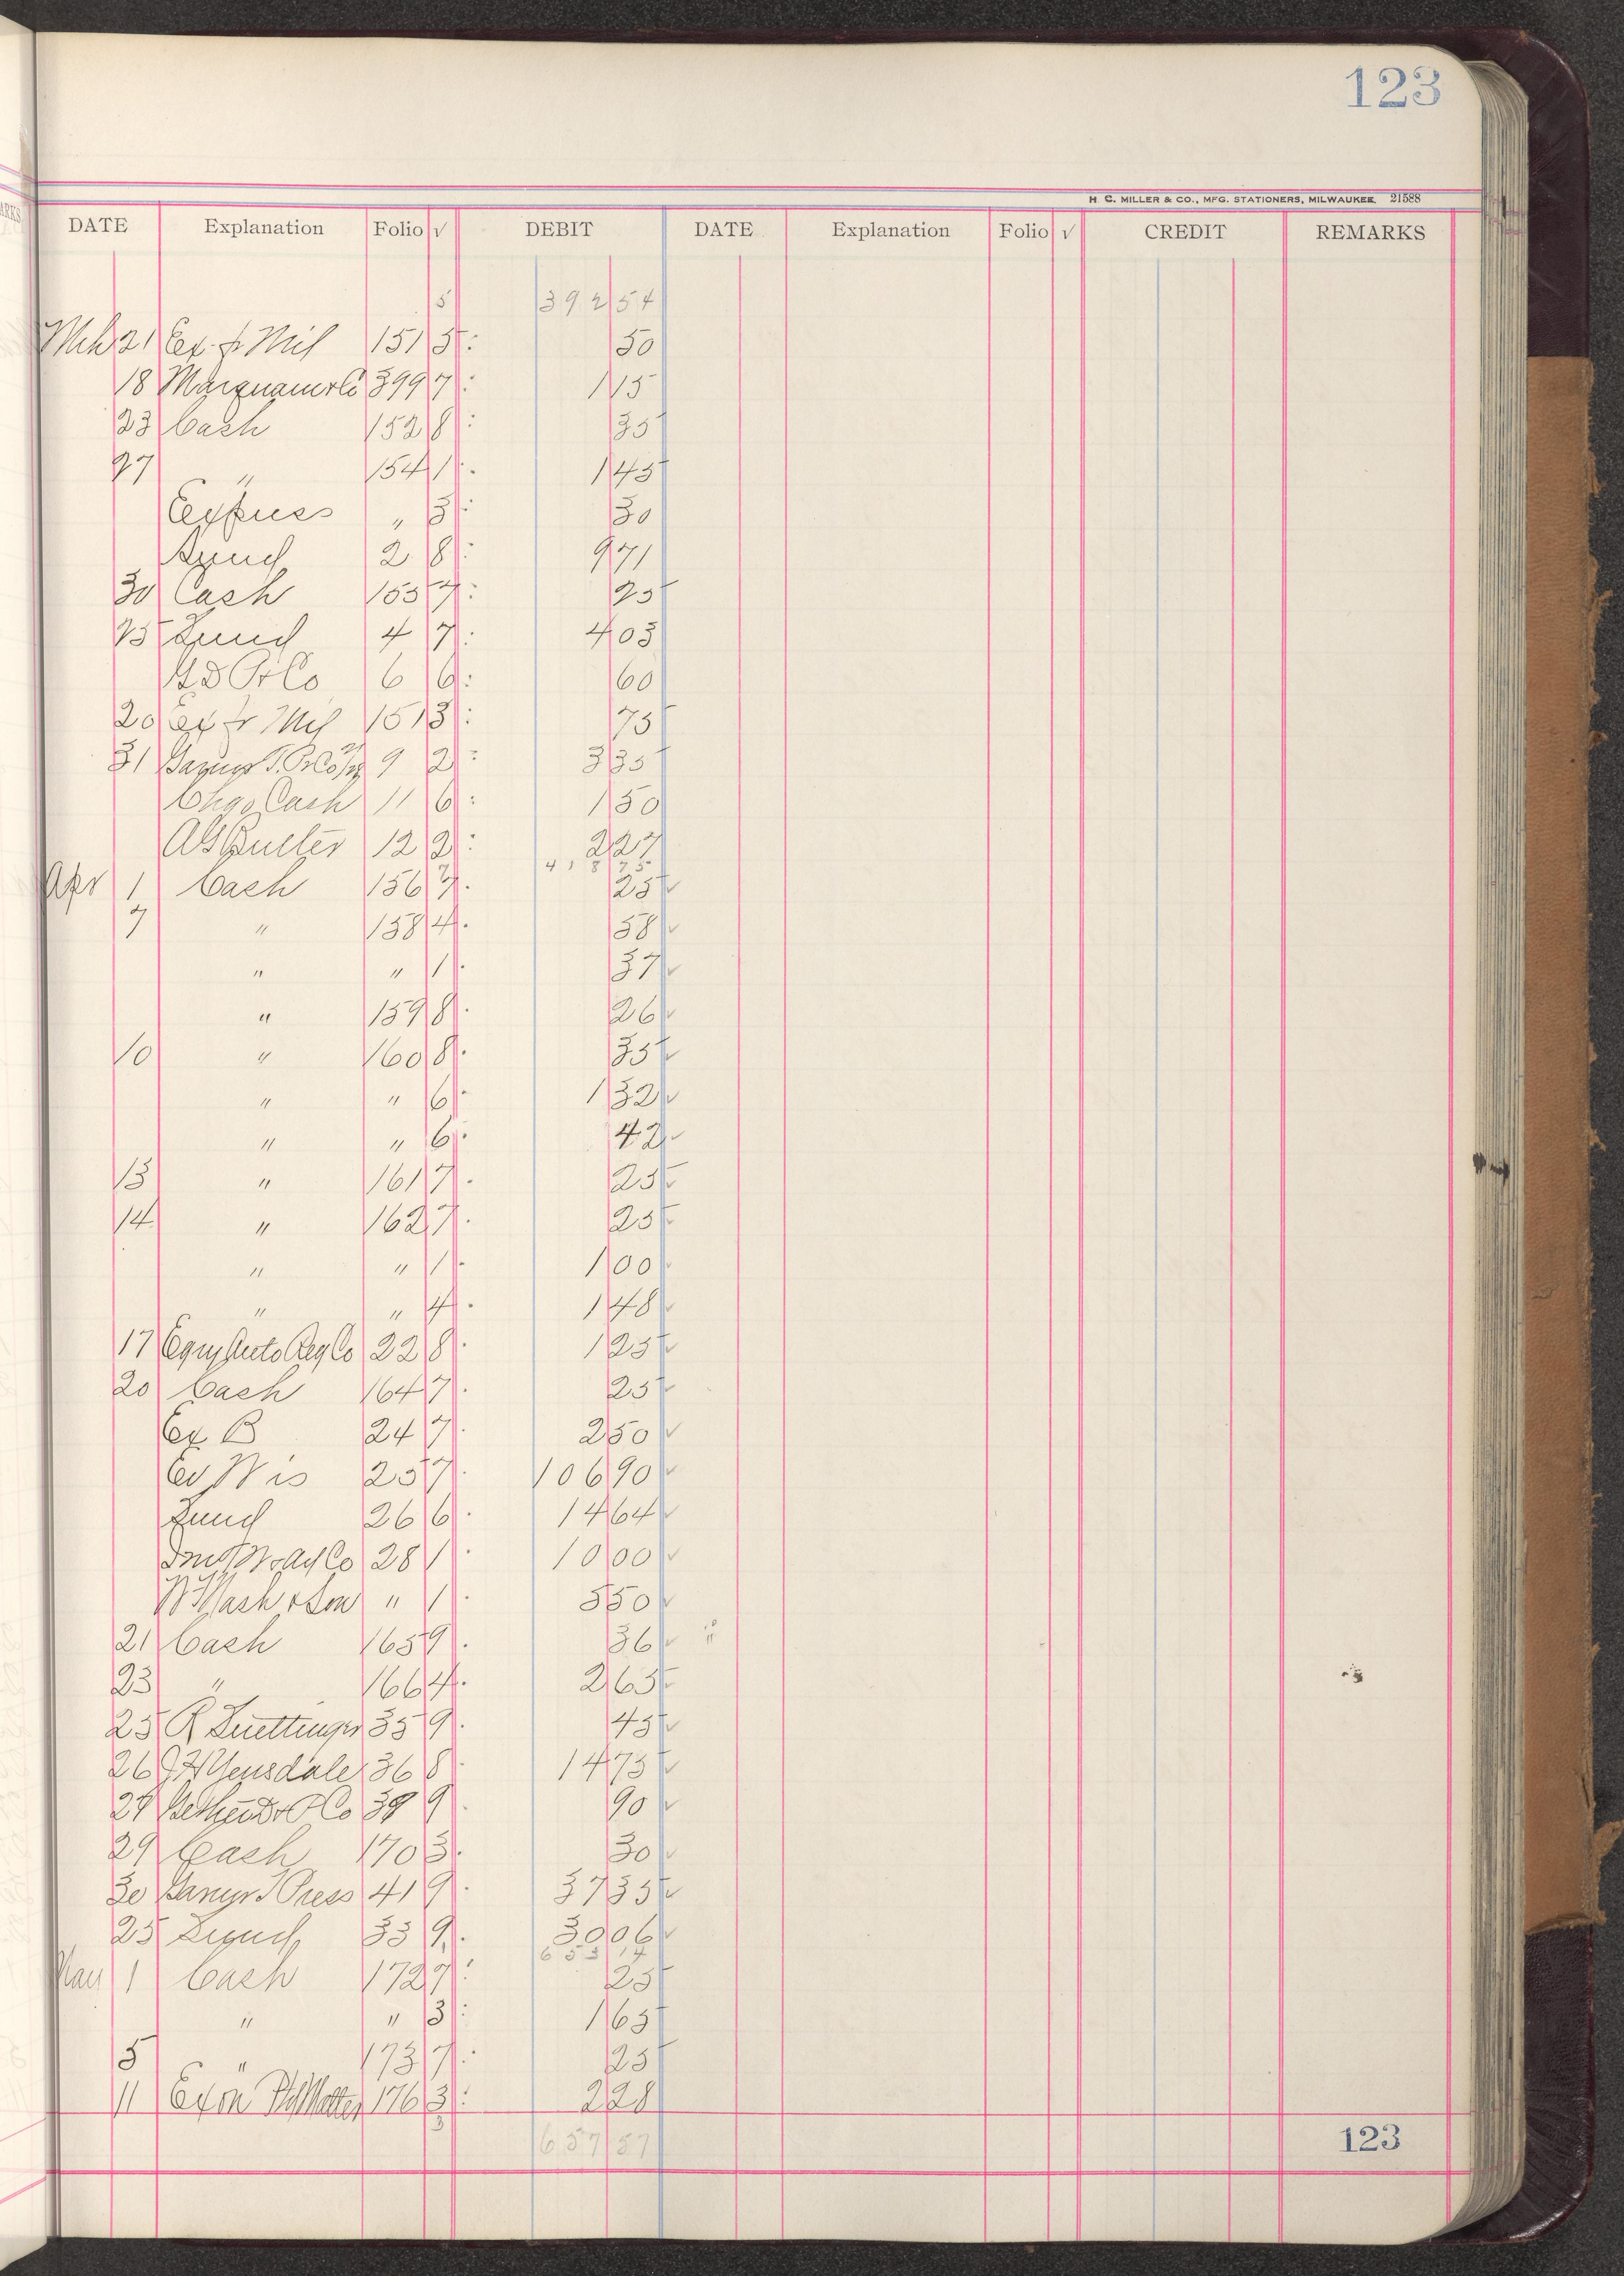 123
H. C. MILLER & CO., MFG. STATIONERS, MILWAUKEE. 21588
DATE Explanation Folio √ DEBIT DATE Explanation Folio √ CREDIT REMARKS
5 392 54
Mch 21 Ex. fr Mil 151 5 : 50
18 Marquam & Co 399 7 : 1 15
23 Cash 152 8 : 35
27 " 154 1 : 1 45
Express " 3 : 30
Sund 2 8 : 9 71
30 Cash 155 7 : 25
25 Sund 4 7 : 4 03
P & Co 6 6 : 60
20 Ex fr Mil 151 3 : 75
31 9 2 : 3 35
Chgo Cash 11 6 : 1 50
AG Butler 12 2 : 2 27
418 75
Apr 1 Cash 156 7 . 25 ✓
7 " 158 4 . 58 ✓
" " 1 . 37 ✓
" 159 8 . 26 ✓
10 " 160 8 . 35 ✓
" " 6 . 1 32 ✓
" " 6 . 42 ✓
13 " 161 7 . 25 ✓
14 " 162 7 . 25 ✓
" " 1 . 1 00 ✓
" " 4 . 1 48 ✓
17 Auto Reg Co 22 8 . 1 25 ✓
20 Cash 164 7 . 25 ✓
Ex B 24 7 . 2 50 ✓
Wis 25 7 . 106 90 ✓
Sund 26 6 . 14 64 ✓
Co 28 1 . 10 00 ✓
Nash & Son " 1 . 5 50 ✓
21 Cash 165 9 . 36 ✓
23 " 166 4 . 2 65 ✓
25 R Luettinger 35 9 . 45 ✓
26 36 8 . 14 75 ✓
Co 9 . 90 ✓
29 Cash 170 3 . 30 ✓
30 Press 41 9 . 37 35 ✓
25 Sund 33 9 . 30 06 ✓
653 14
May 1 Cash 172 7 : 25
" " 3 : 1 65
5 " 173 7 : 25
11 Ex on Matter 176 3 : 2 28
3 657 57
123